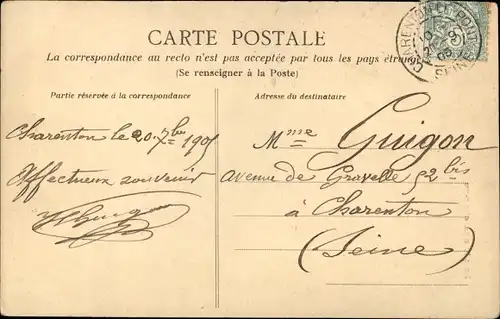 CARTE POSTALE
La correspondance au recto n'est pas acceptée par tous les pays étrang
(Se renseigner à la Poste)
Partie réservée à la correspondance
Adresse du destinataire
CHARENTON-LE-PONT
SEINE
Charenton le 20 7bre 1905
Affectueux souvenir
Mme Guigon
avenue de Gravelle 52 bis
à Charenton
(Seine)